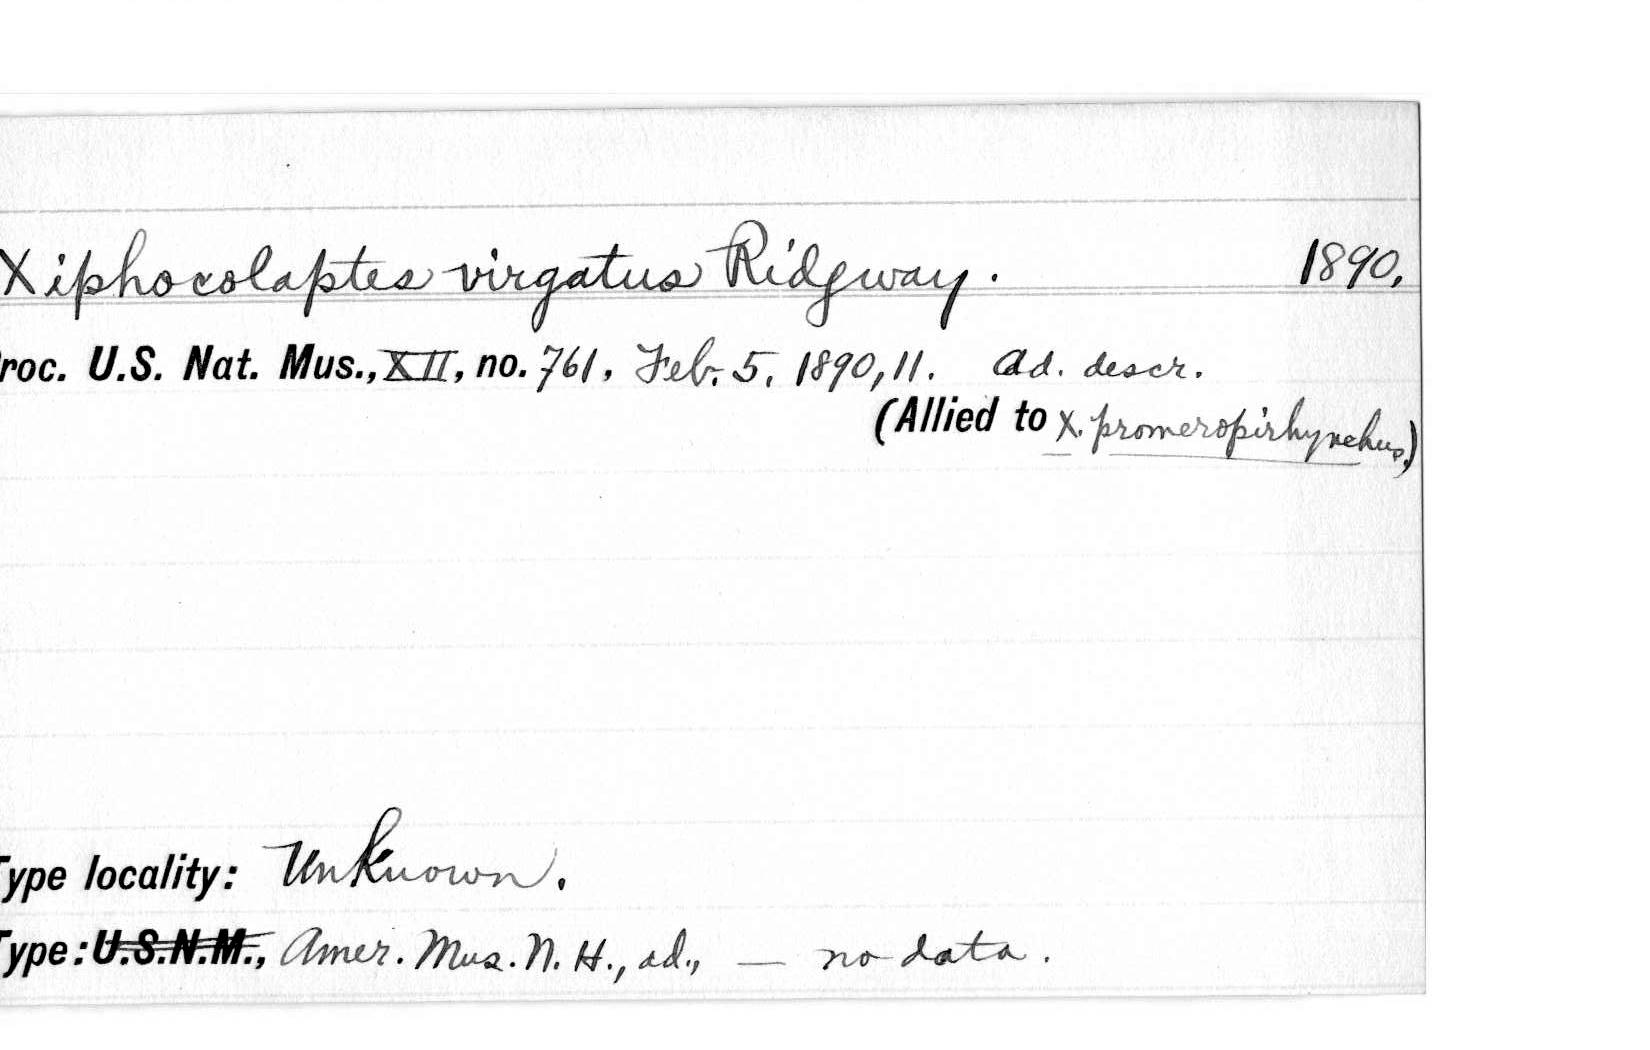 Xiphocolaptes virgatus Ridgway. 1890.
roc. U.S. Nat. Mus., XII, no. 761, Feb. 5, 1890, 11. Ad. descr.
(Allied to X. promeropirhynchus.)
Type locality: Unknown.
Type: U.S.N.M., Amer. Mus. N. H., ad., — no data.